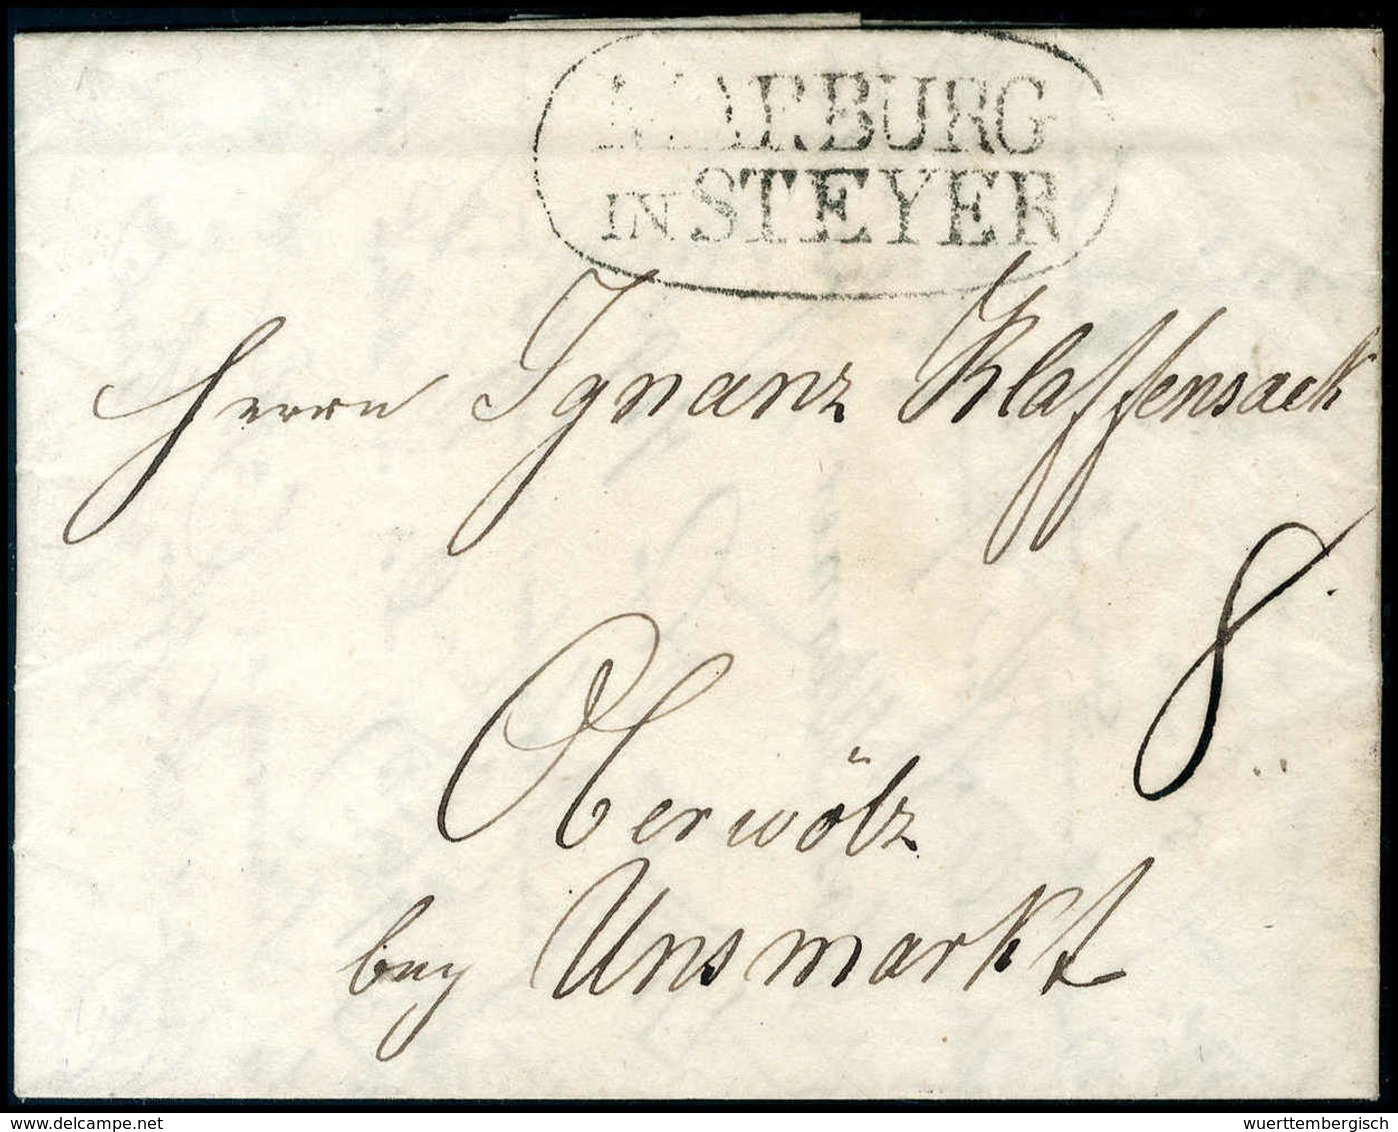 MARBURG
IN STEYER
Herrn Ignanz Klaffensack
8
Oberwölz
bey Unsmarkt
delcampe.net
wuerttembergisch